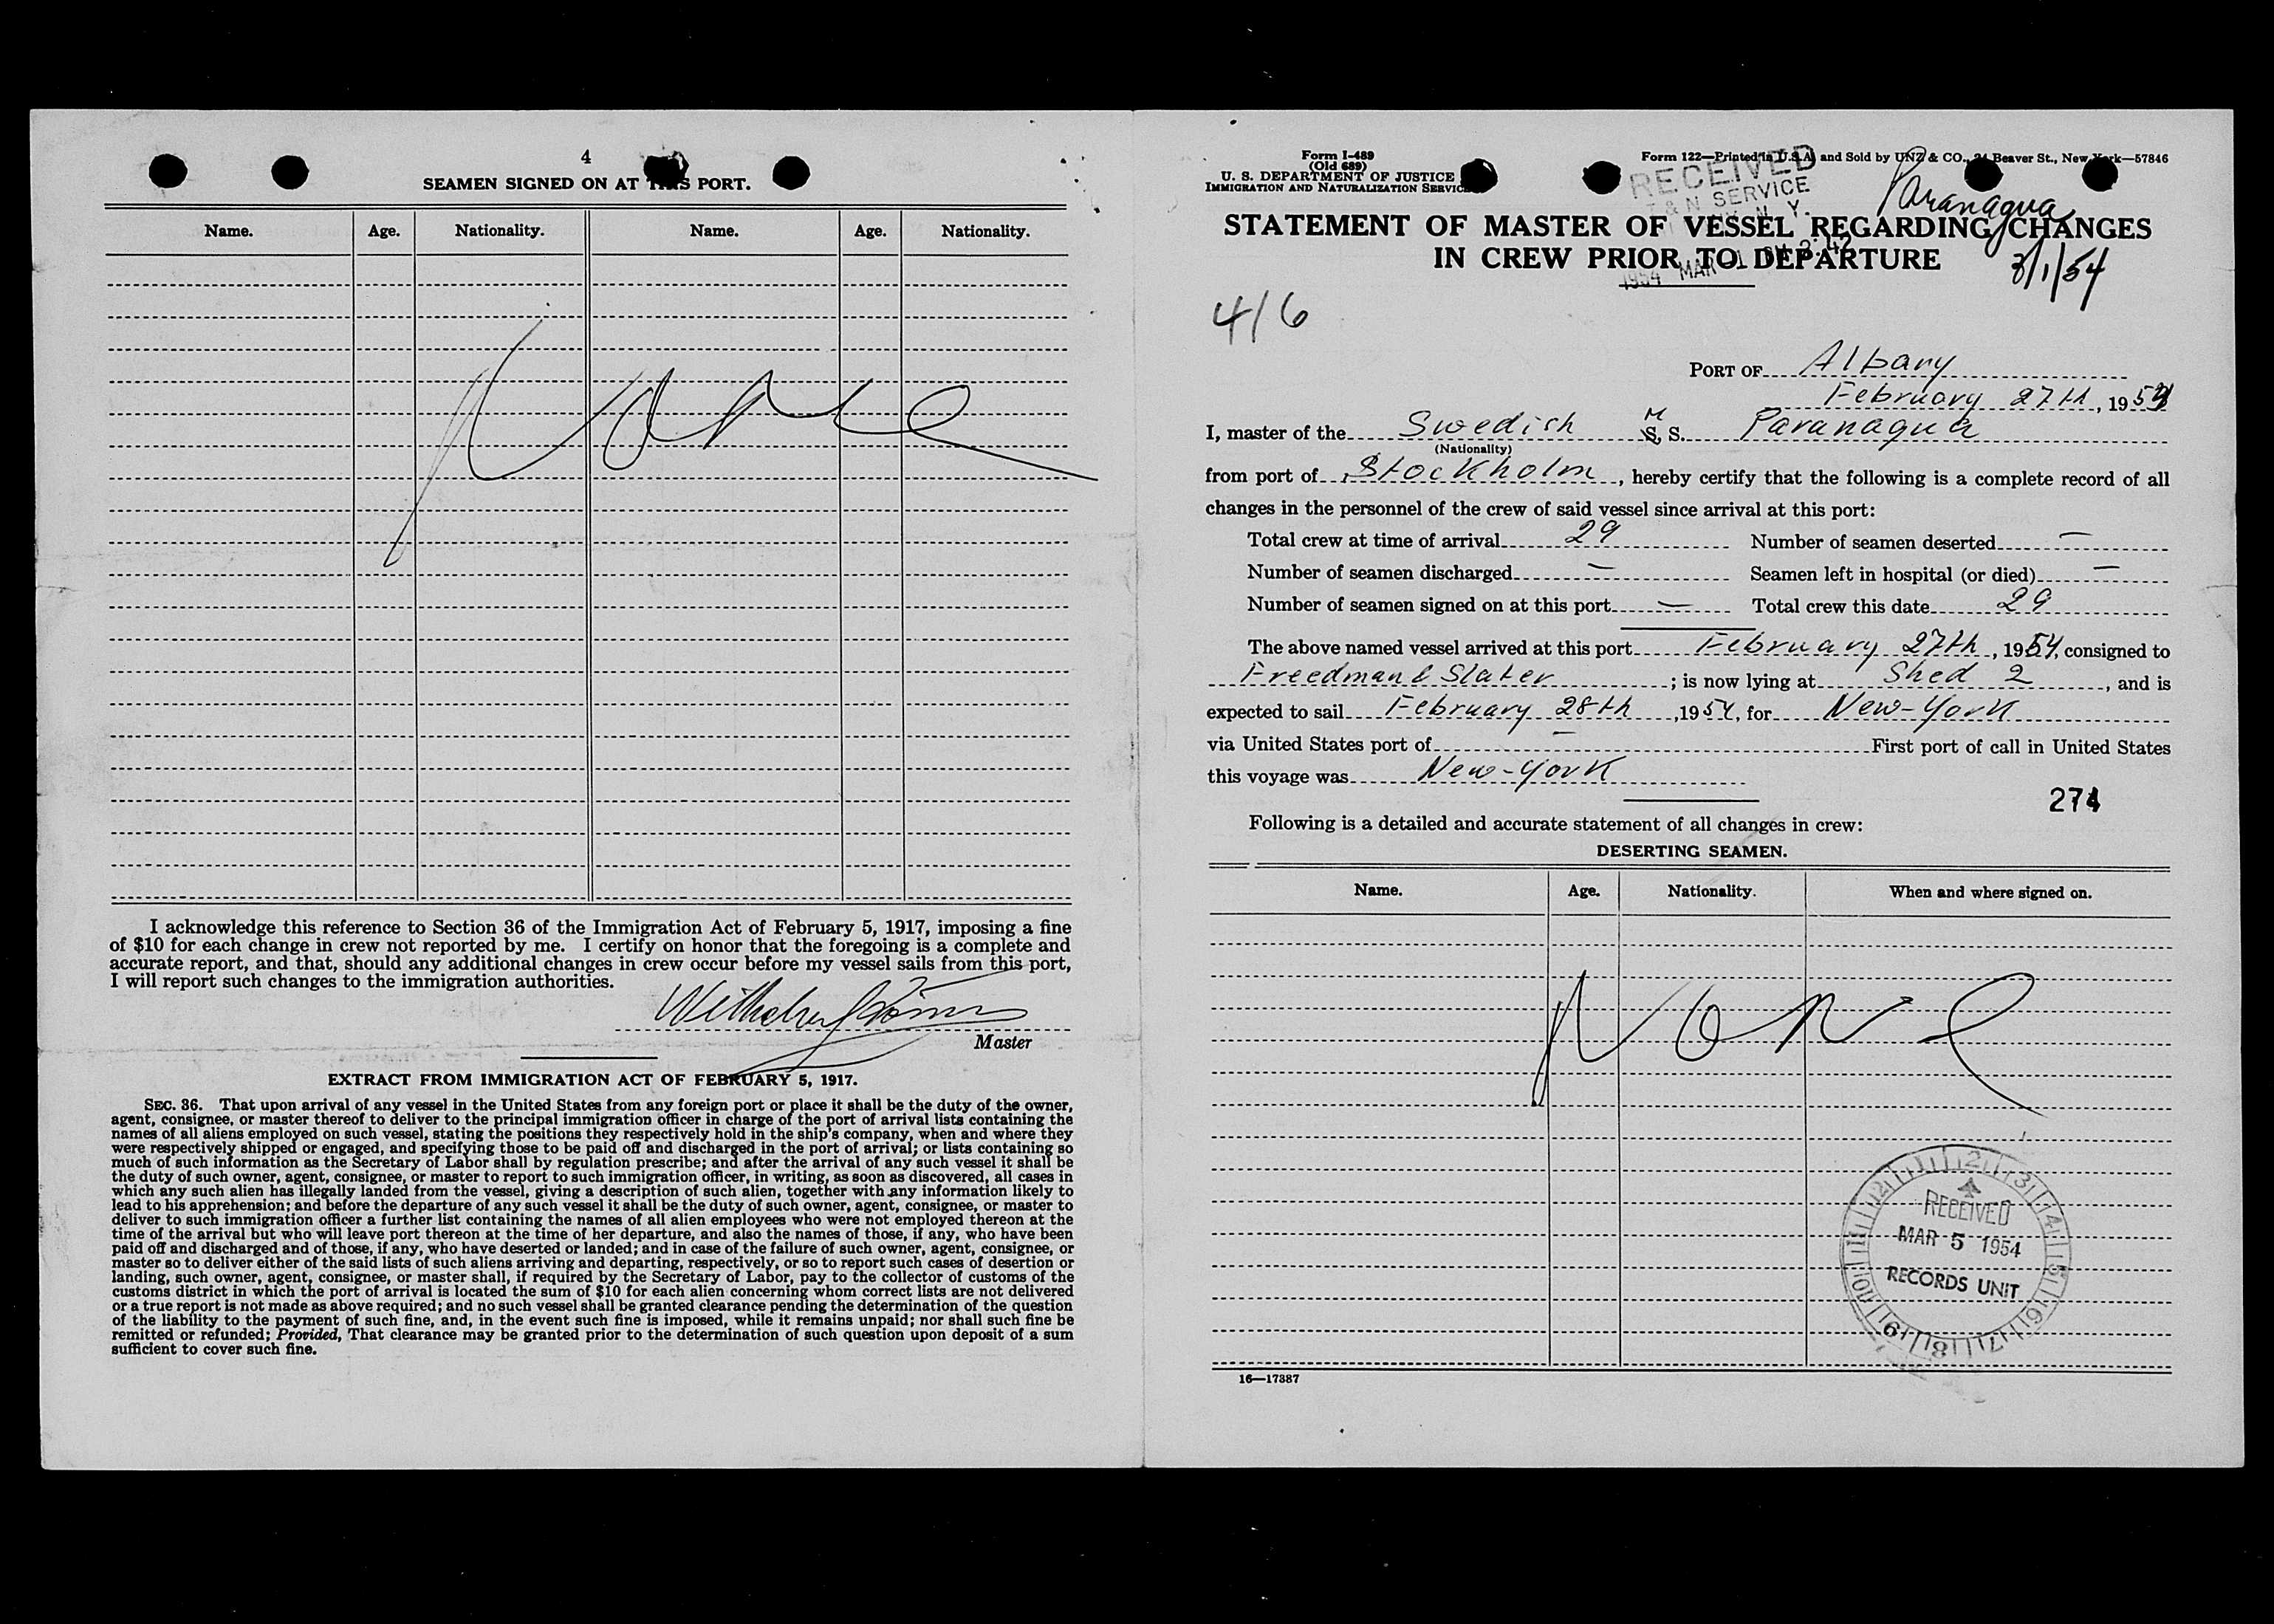 4
SEAMEN SIGNED ON AT THIS PORT.
Name. Age. Nationality. Name. Age. Nationality.
None
I acknowledge this reference to Section 36 of the Immigration Act of February 5, 1917, imposing a fine
of $10 for each change in crew not reported by me. I certify on honor that the foregoing is a complete and
accurate report, and that, should any additional changes in crew occur before my vessel sails from this port,
I will report such changes to the immigration authorities.
Master
EXTRACT FROM IMMIGRATION ACT OF FEBRUARY 5, 1917.
SEC. 36. That upon arrival of any vessel in the United States from any foreign port or place it shall be the duty of the owner,
agent, consignee, or master thereof to deliver to the principal immigration officer in charge of the port of arrival lists containing the
names of all aliens employed on such vessel, stating the positions they respectively hold in the ship's company, when and where they
were respectively shipped or engaged, and specifying those to be paid off and discharged in the port of arrival; or lists containing so
much of such information as the Secretary of Labor shall by regulation prescribe; and after the arrival of any such vessel it shall be
the duty of such owner, agent, consignee, or master to report to such immigration officer, in writing, as soon as discovered, all cases in
which any such alien has illegally landed from the vessel, giving a description of such alien, together with any information likely to
lead to his apprehension; and before the departure of any such vessel it shall be the duty of such owner, agent, consignee, or master to
deliver to such immigration officer a further list containing the names of all alien employees who were not employed thereon at the
time of the arrival but who will leave port thereon at the time of her departure, and also the names of those, if any, who have been
paid off and discharged and of those, if any, who have deserted or landed; and in case of the failure of such owner, agent, consignee, or
master so to deliver either of the said lists of such aliens arriving and departing, respectively, or so to report such cases of desertion or
landing, such owner, agent, consignee, or master shall, if required by the Secretary of Labor, pay to the collector of customs of the
customs district in which the port of arrival is located the sum of $10 for each alien concerning whom correct lists are not delivered
or a true report is not made as above required; and no such vessel shall be granted clearance pending the determination of the question
of the liability to the payment of such fine, and, in the event such fine is imposed, while it remains unpaid; nor shall such fine be
remitted or refunded; Provided, That clearance may be granted prior to the determination of such question upon deposit of a sum
sufficient to cover such fine.
Form I-489
(Old 689)
U. S. DEPARTMENT OF JUSTICE
IMMIGRATION AND NATURALIZATION SERVICE
Form 122—Printed in U.S.A. and Sold by UNZ & CO., 24 Beaver St., New York—57846
RECEIVED
I & N SERVICE
N. Y.
1954 MAR -1 PM 2:42
Paranagua
3/1/54
STATEMENT OF MASTER OF VESSEL REGARDING CHANGES
IN CREW PRIOR TO DEPARTURE
416
PORT OF Albany
February 27th, 1954
I, master of the Swedish M S. S. Paranagua
(Nationality)
from port of Stockholm, hereby certify that the following is a complete record of all
changes in the personnel of the crew of said vessel since arrival at this port:
Total crew at time of arrival 29 Number of seamen deserted —
Number of seamen discharged — Seamen left in hospital (or died) —
Number of seamen signed on at this port — Total crew this date 29
The above named vessel arrived at this port February 27th, 1954, consigned to
Freedman & Slater; is now lying at Shed 2, and is
expected to sail February 28th, 1954, for New-York
via United States port of — First port of call in United States
this voyage was New-York
274
Following is a detailed and accurate statement of all changes in crew:
DESERTING SEAMEN.
Name. Age. Nationality. When and where signed on.
None
12 1 2 3 4 5 6 7 8 9 10 11
RECEIVED
MAR 5 1954
RECORDS UNIT
16—17387